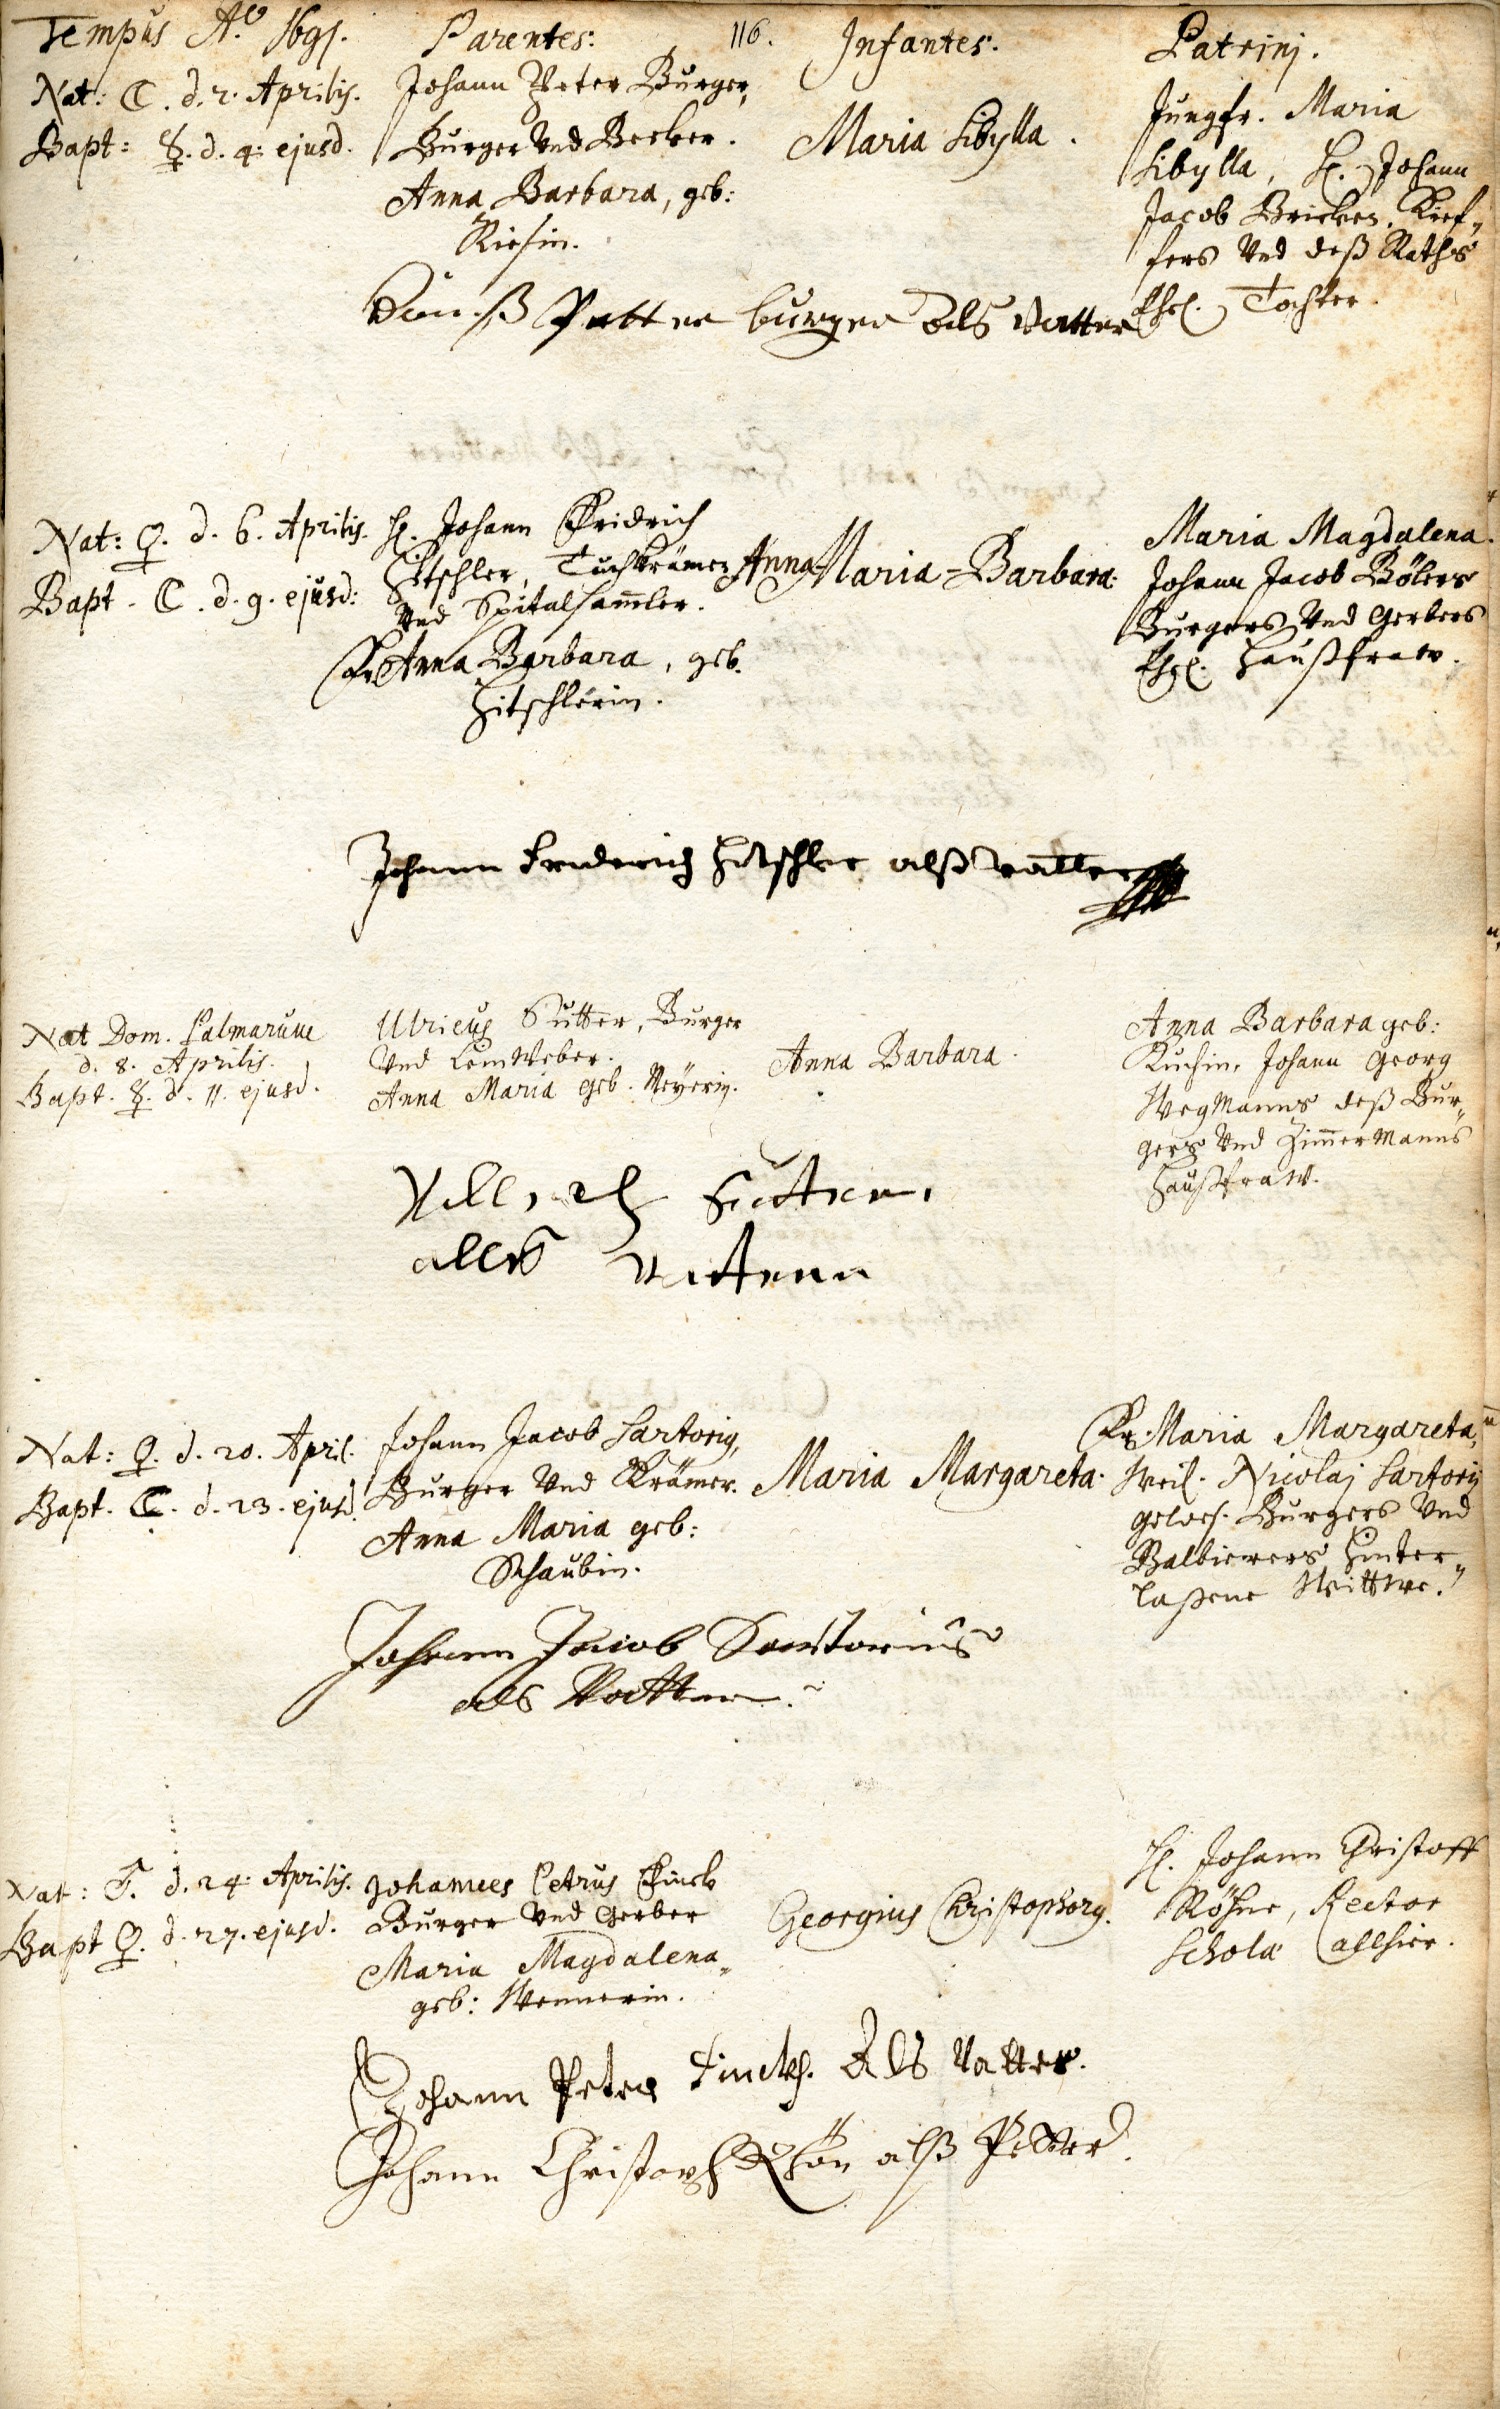 Tempus Aº. 1691. Parentes: 116. Infantes: Patrinj.
Nat: ☾. d. 2. Aprilis.
Bapt: ☿. d. 4. ejusd.
Johann Peter Burger,
Burger Und Becker.
Anna Barbara, geb:
Riesin.
Maria Sibylla.
Jungfr. Maria
Sibylla, H. Johann
Jacob Brickers, Kief-
fers Und deß Raths
Ehel. Tochter.
Petter burger als Vatter
Nat: ♀. d. 6. Aprilis.
Bapt. ☾. d. 9. ejusd:
H. Johann Fridrich
Hitschler, Tuchkrämer
Und Spitalsam̄ler.
Fr. Anna Barbara, geb.
Hitschlerin.
Anna Maria-Barbara:
Maria Magdalena.
Johann Jacob Bölers
Burgers Und Gerbers
Ehel. Haußfraw.
Johann Friderich Hitschler alß vatter
Nat Dom. Palmarum
d. 8. Aprilis.
Bapt. ☿. d. 11. ejusd.
Ulricus Sutter, Burger
Und Leinweber.
Anna Maria geb. Meÿerin.
Anna Barbara.
Anna Barbara geb:
Kuchin, Johann Georg
Wegmanns deß Bur-
gers Und Zim̄ermanns
Haußfraw.
Ullrich Sutter
alls Vatter
Nat: ♀. d. 20. April.
Bapt. ☾. d. 23. ejusd.
Johann Jacob Sartorig,
Burger Und Krämer.
Anna Maria geb:
Schaubin.
Maria Margareta.
Fr. Maria Margareta,
Weil. Nicolaj Sartorij
gewes. Burgers Und
Balbierers Hinter-
laßene Wittwe.
Johann Jacob Sartorius
als Vatter.
Nat: ♂. d. 24. Aprilis.
Bapt ♀. d. 27. ejusd.
Johannes Petrus Finck
Burger Und Gerber
Maria Magdalena
geb: Wennerin.
Georgius Christophorg.
H. Johann Christoff
Röhne, Rector
Scholæ allhier.
Johann Peter Finckh. Als Vatter.
Johann Christoph Rhön alß Petter